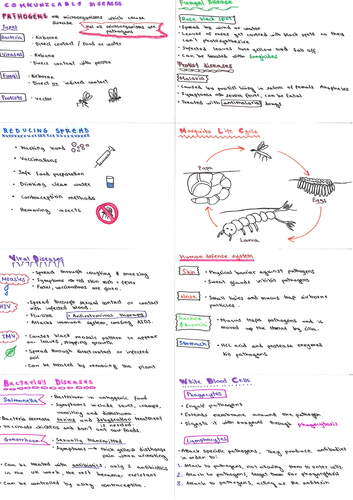 COMMUNICABLE DISEASES
PATHOGENS are microorganisms which cause
disease.
Not all microorganisms are
pathogens
Types
Bacteria
• Airborne
• Direct contact / food or water
Viruses
• Airborne
• Direct contact with
Fungi
• Airborne
• Direct or indirect contact
Protists
• Vector
Fungal Disease
Rose black spot
• Spread by wind or water
• Leaves of rose get covered with black spots so they
can't photosynthesise
• Infected leaves turn yellow and fall off.
• Can be treated with fungicides
Protist diseases
Malaria
• Caused by protist living in saliva of female Anopheles
• Symptoms are severe fever, can be fatal
• Treated with antimalarial drugs
REDUCING SPREAD
• Washing hand
• Vaccinations
• Safe food preparation
• Drinking clean water
• Contraception methods
• Removing insects
Mosquito Life Cycle
Pupa
Eggs
Larva
Viral Diseases
Measles
• Spread through coughing & sneezing
• Symptoms: red skin rash + fever
• Fatal, vaccinations are given.
HIV
• Spread through sexual contact or contact
with infected blood.
• Flu-like
• Antiretroviral therapy
• Attacks immune system, causing AIDS.
TMV
• Causes black mosaic pattern to appear
on leaves, stopping growth.
• Spread through direct contact or infected
soil
• Can be treated by removing the plant
Human defence system
Skin
• Physical barrier against pathogens
• Sweat glands inhibit pathogens
Nose
• Small hairs and mucus trap airborne
particles.
Trachea
& bronchi
• Mucus traps pathogens and is
moved up the throat by cilia.
Stomach
• HCl acid and protease enzymes
kill pathogens.
Bacterial Diseases
Salmonella
• Bacterium in unhygienic food
• Symptoms include fever, cramps,
vomiting and diarrhoea
Gonorrhoea
• Sexually transmitted
• Symptoms → thick yellow discharge
pain when urinating
• Can be treated with antibiotics, only 2 antibiotics
in the UK work, the rest became resistant
• Can be controlled by using contraception.
White Blood Cells
Phagocytes
• Engulf pathogens
• Extends membrane around the pathogen
• Digests it with enzymes through phagocytosis
Lymphocytes
• Attack specific pathogens. They produce antibodies
in order to:
1. Attach to pathogens, not allowing them to enter cells
2. Attach to pathogens, target them for phagocytosis
3. Attach to pathogens, acting as antitoxins